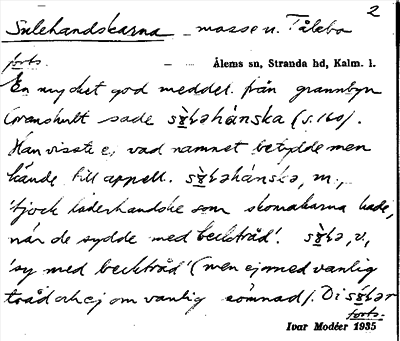 2
Sulehandskarna – mosse n. Tålebo
forts. – – Ålems sn, Stranda hd, Kalm. l.
En mycket god meddel. från grannbyn
sade (s. 160).
Han visste ej vad namnet betydde men
kände till appell. m.,
'tjock läderhandske som skomakarna hade,
när de sydde med becktråd'. v.,
'sy med becktråd' (men ej med vanlig
tråd och ej om vanlig sömnad). Di
forts.
Ivar Modéer 1935